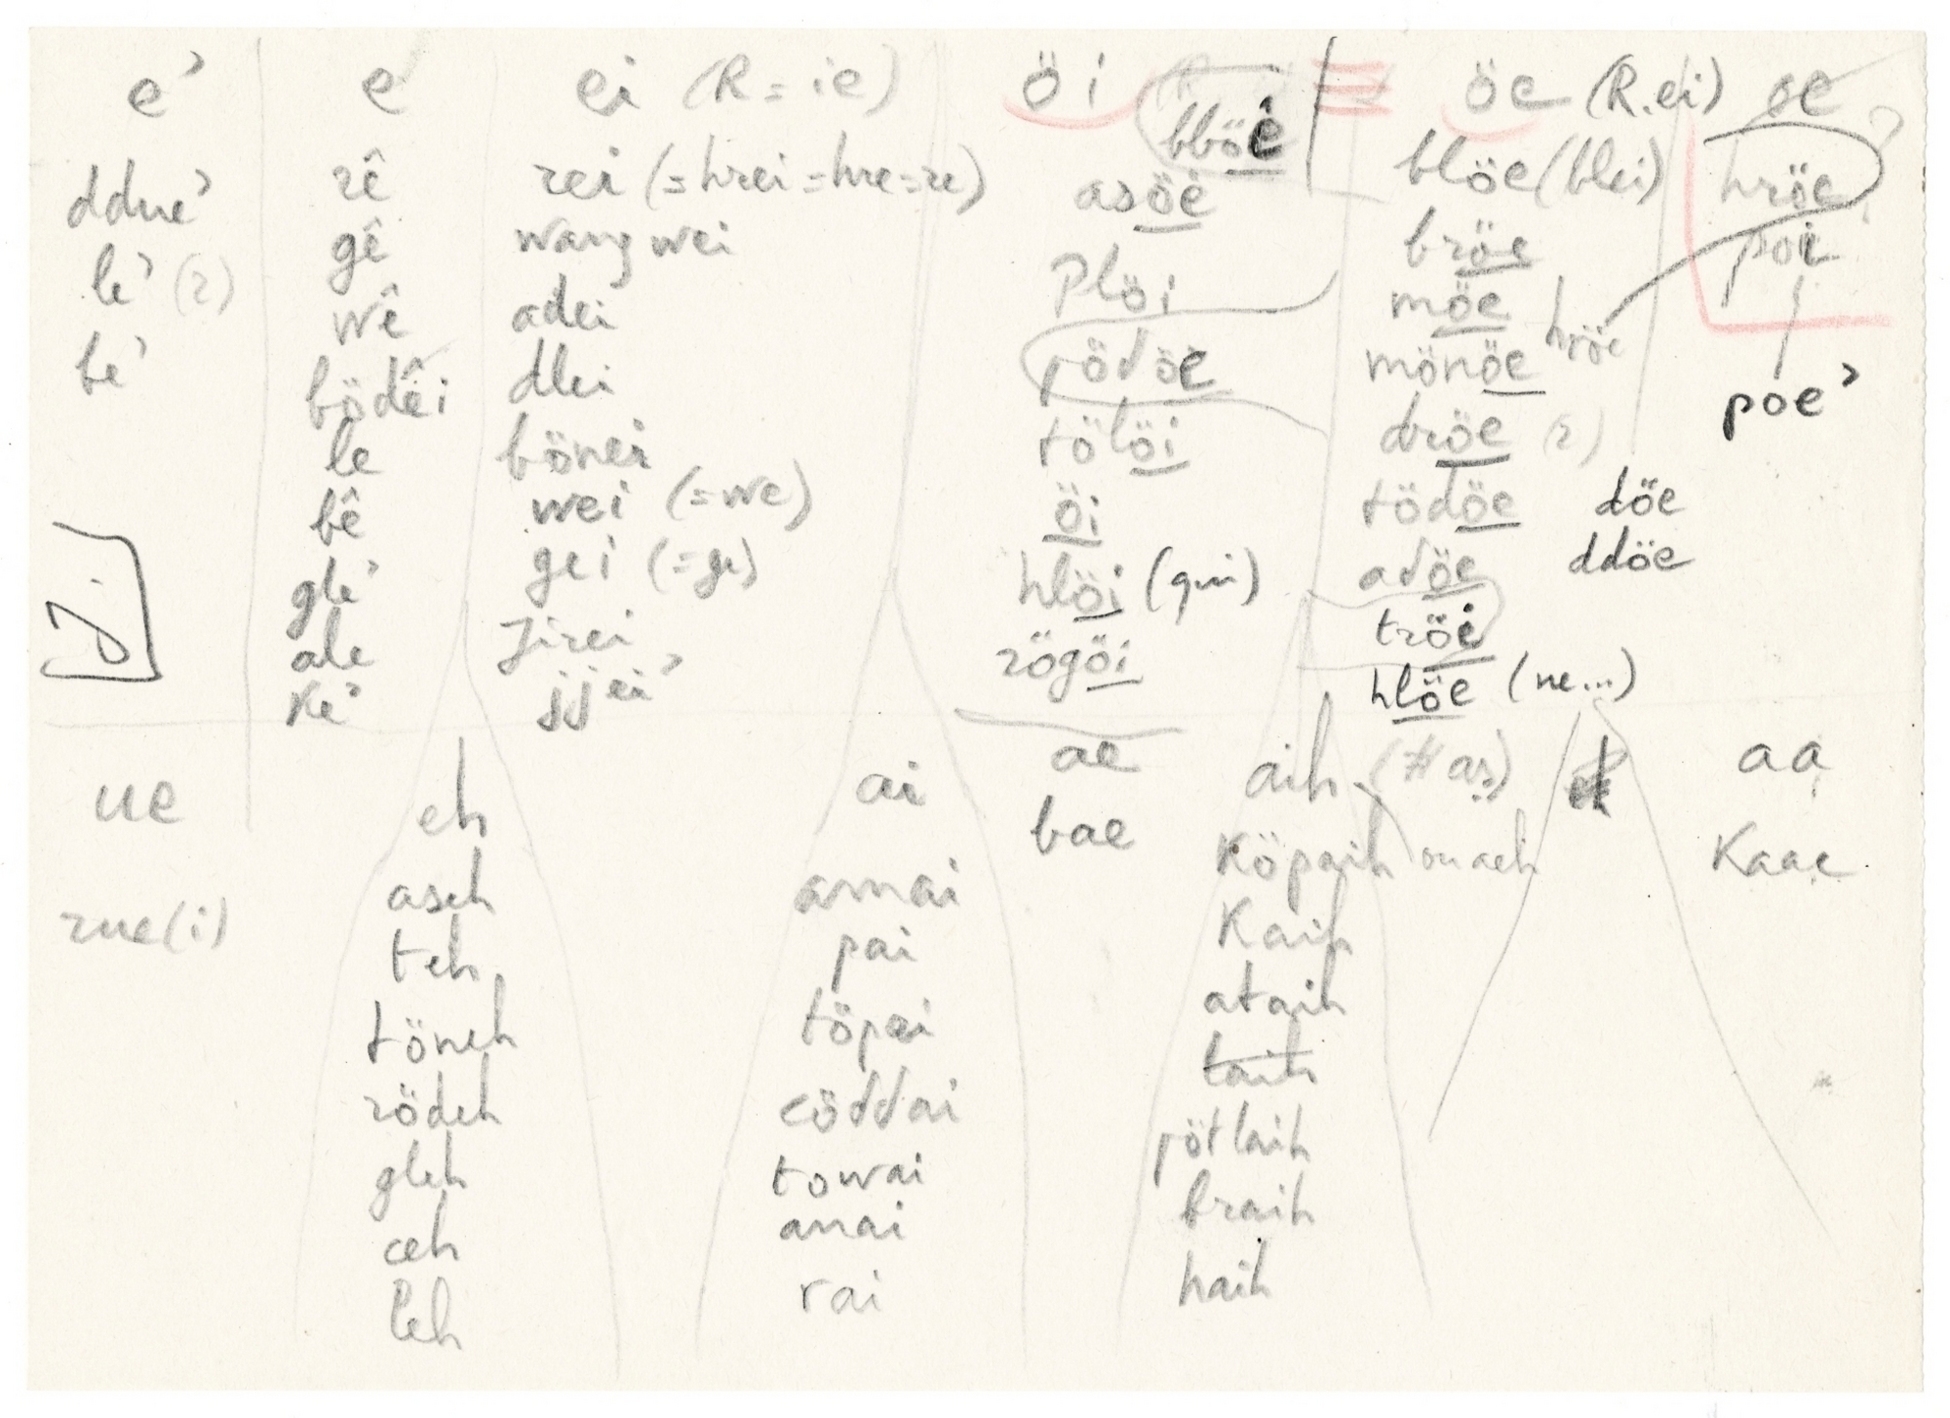 e' e ei (R = ie) öi öe (R.ei) oe
bböe
ddue' rê rei (= hrei = hre = re) asöe blöe (blei) hröe
le' (2) gê wang wei plöi bröe poi
be' wê adei pödöe möe hröe
bödêi dlei tölöi mönöe poe'
le bönei öi dröe (2)
bê wei (= we) hlöi (qui) tödöe döe
gle' gei (= ge) rögöi adöe ddöe
ale jirei tröe
ke' jjei' hlöe (ne...)
ue eh ai ae aih (# as) aa
bae
aseh amai köpaih ou aeh kaae
rue(i) teh pai kaih
töneh töpai ataih
rödeh cöddai taih
gleh towai pötlaih
ceh anai braih
leh rai haih